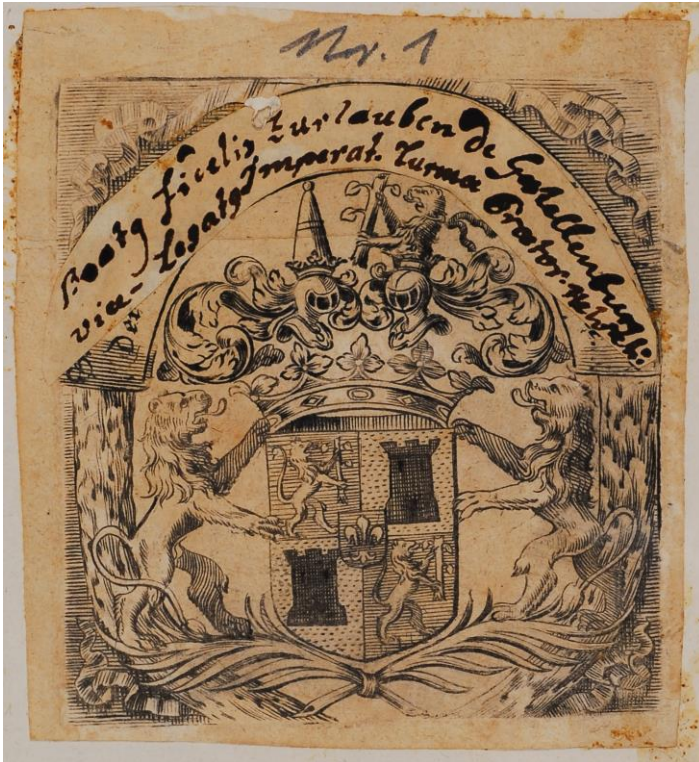 Nr. 1
Beatg fidelis Zurlauben De Gestellenburg
vice-Legatg Imperat. Turmæ Prætor. Helveti: